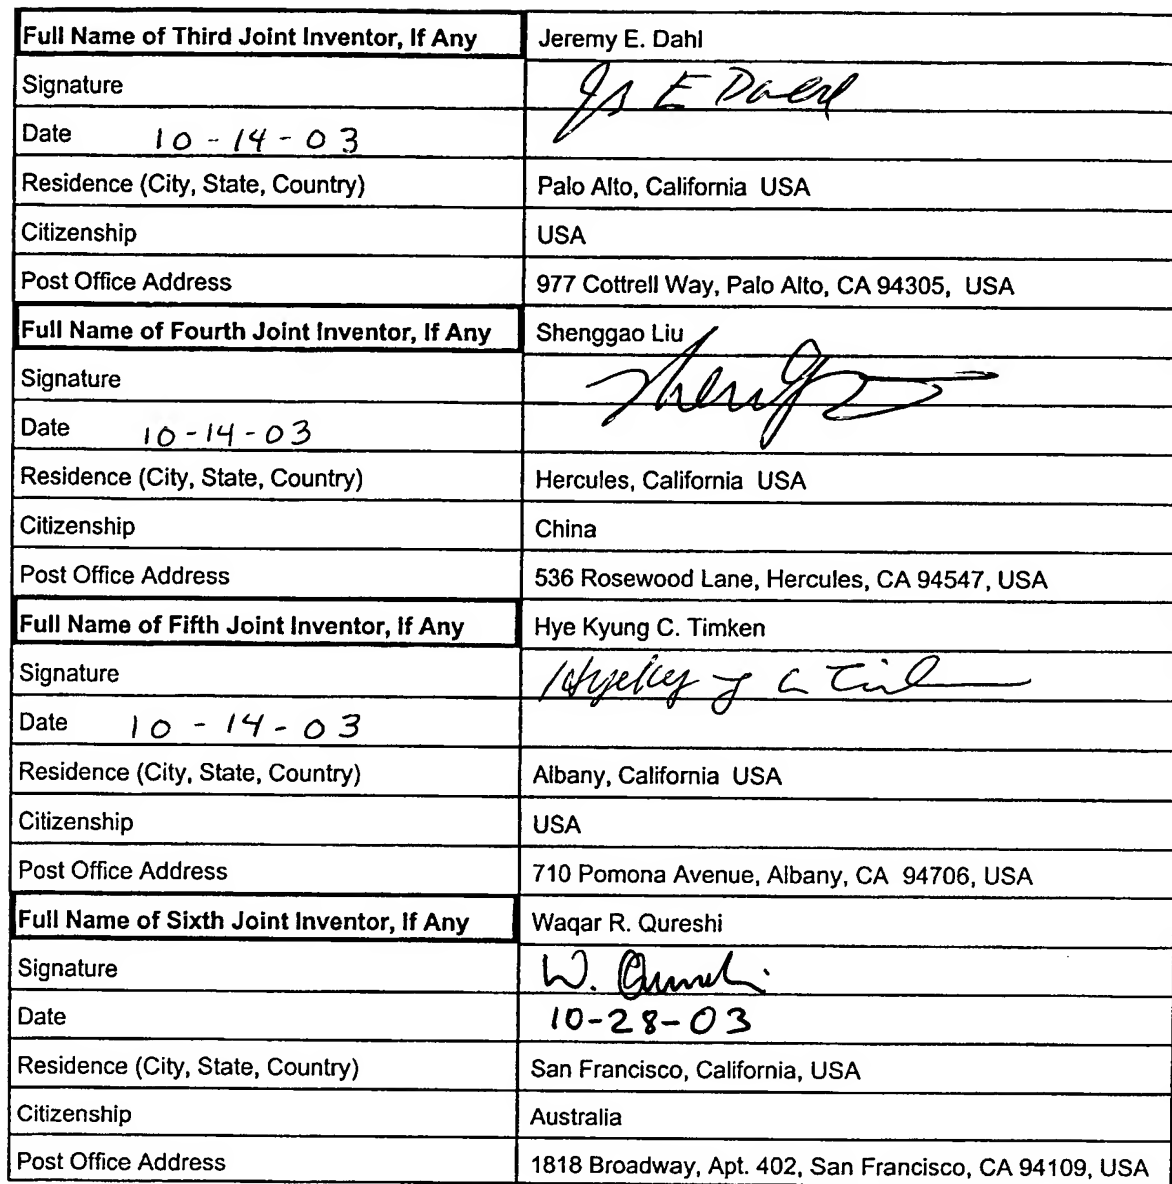 Full Name of Third Joint Inventor, If Any Jeremy E. Dahl
Signature
Date 10-14-03
Residence (City, State, Country) Palo Alto, California USA
Citizenship USA
Post Office Address 977 Cottrell Way, Palo Alto, CA 94305, USA
Full Name of Fourth Joint Inventor, If Any Shenggao Liu
Signature
Date 10-14-03
Residence (City, State, Country) Hercules, California USA
Citizenship China
Post Office Address 536 Rosewood Lane, Hercules, CA 94547, USA
Full Name of Fifth Joint Inventor, If Any Hye Kyung C. Timken
Signature
Date 10-14-03
Residence (City, State, Country) Albany, California USA
Citizenship USA
Post Office Address 710 Pomona Avenue, Albany, CA 94706, USA
Full Name of Sixth Joint Inventor, If Any Waqar R. Qureshi
Signature W.
Date 10-28-03
Residence (City, State, Country) San Francisco, California, USA
Citizenship Australia
Post Office Address 1818 Broadway, Apt. 402, San Francisco, CA 94109, USA